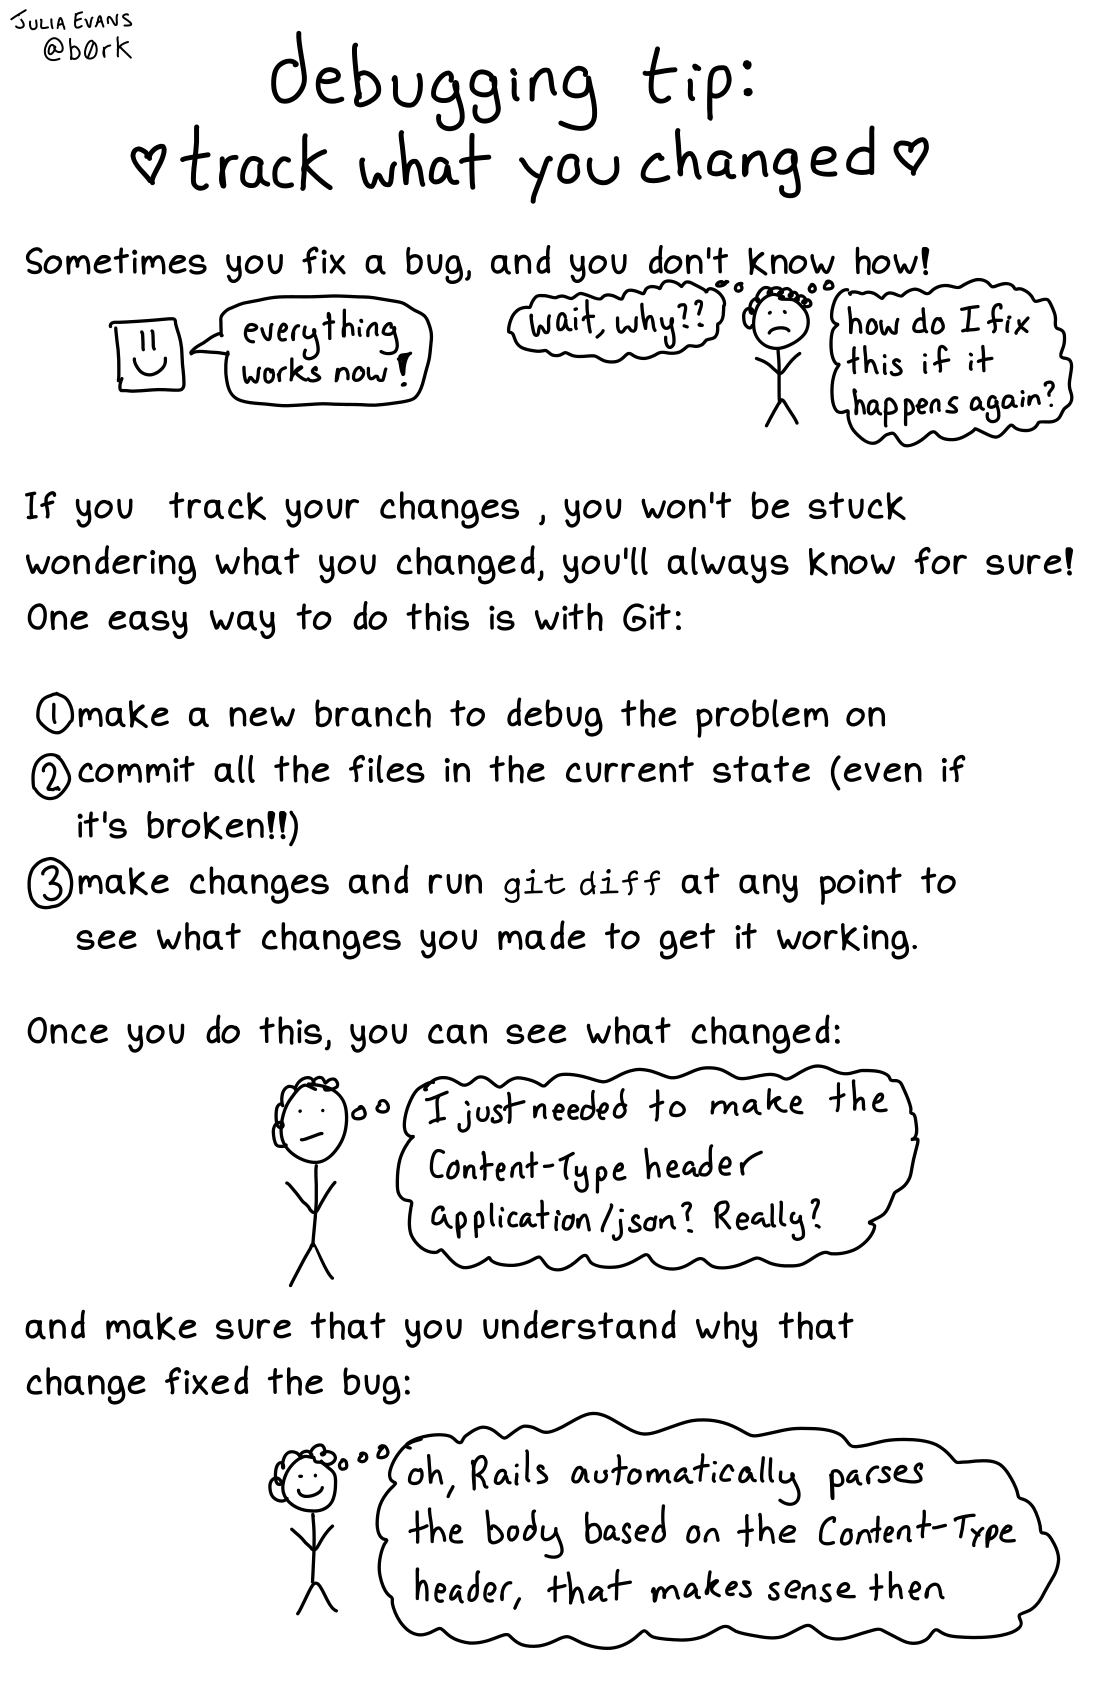 JULIA EVANS
@b0rk
debugging tip:
♡ track what you changed ♡
Sometimes you fix a bug, and you don't know how!
everything
works now!
wait, why??
how do I fix
this if it
happens again?
If you track your changes, you won't be stuck
wondering what you changed, you'll always know for sure!
One easy way to do this is with Git:
① make a new branch to debug the problem on
② commit all the files in the current state (even if
it's broken!!)
③ make changes and run git diff at any point to
see what changes you made to get it working.
Once you do this, you can see what changed:
I just needed to make the
Content-Type header
application/json? Really?
and make sure that you understand why that
change fixed the bug:
oh, Rails automatically parses
the body based on the Content-Type
header, that makes sense then